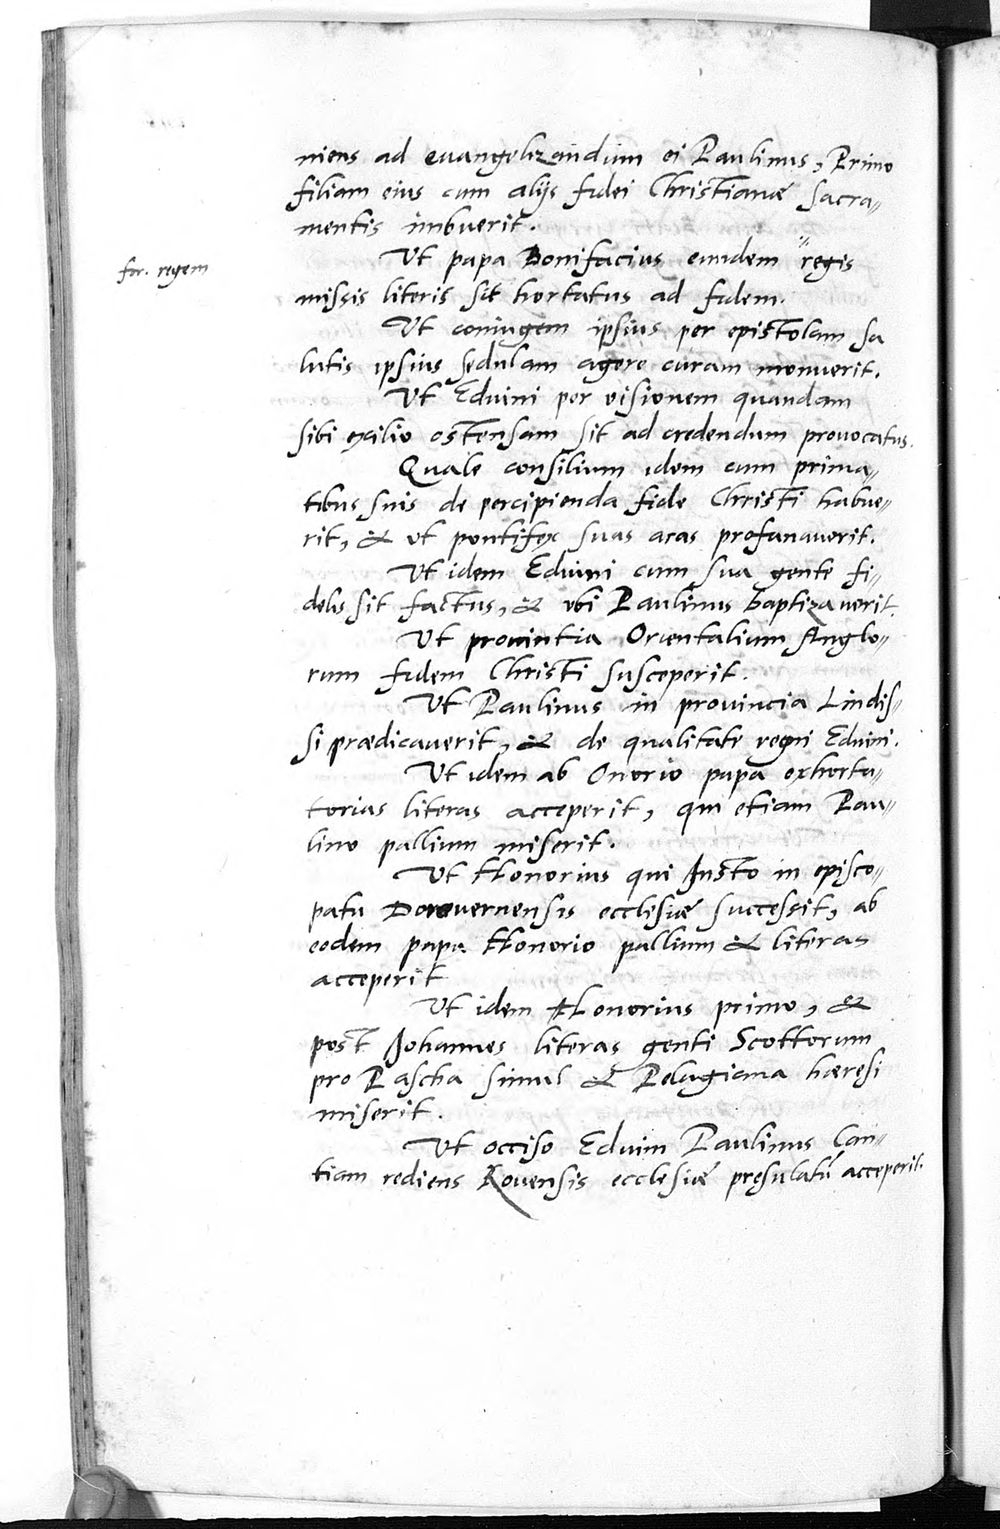 niens ad euangelizandum ei Paulinus, Primo
filiam eius cum alijs fidei Christianæ sacra〃
mentis imbuerit.
Ut papa Bonifacius eundem 〃regis
for. regem
missis literis sit hortatus ad fidem.
Ut coniugem ipsius per epistolam sa
lutis ipsius sedulam agere curam monuerit.
Ut Eduini per visionem quandam
sibi exilio ostensam sit ad credendum prouocatus.
Quale consilium idem cum prima〃
tibus suis de percipienda fide Christi habue〃
rit, & ut pontifex suas aras profanauerit.
Ut idem Eduini cum sua gente fi〃
delis sit factus, & vbi Paulinus baptizauerit.
Ut prouintia Orientalium Anglo〃
rum fidem Christi susceperit.
Ut Paulinus in prouincia Lindis〃
si prædicauerit, & de qualitate regni Eduini.
Ut idem ab Onorio papa exhorta〃
torias literas acceperit, qui etiam Pau〃
lino pallium miserit.
Ut Honorius qui Justo in episco〃
patu Doreuernensis ecclesiæ successit, ab
eodem papa Honorio pallium & literas
acceperit
Ut idem Honorius primo, &
post Johannes literas genti Scottorum
pro Pascha simul & Pelagiana hæresi
miserit.
Ut occiso Eduini Paulinus Can〃
tiam rediens Rouensis ecclesiæ presulatū acceperit.